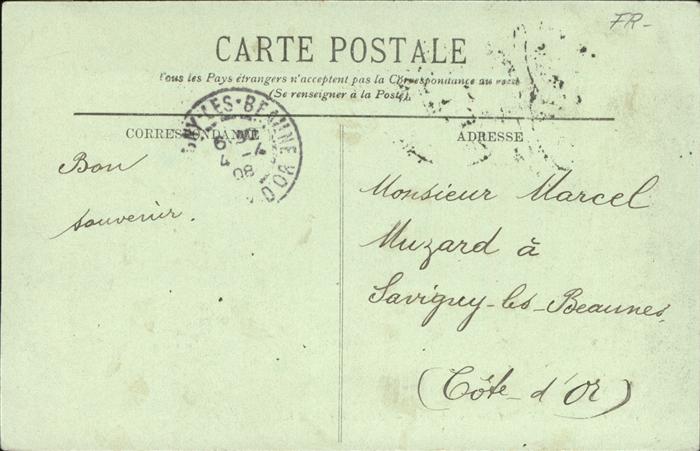 FR-
CARTE POSTALE
Tous les Pays étrangers n'acceptent pas la Correspondance au recto
(Se renseigner à la Poste).
CORRESPONDANCE
ADRESSE
GNY-LES-BEAUNE
COTE D'OR
4
08
Bon
souvenir.
Monsieur Marcel
Muzard à
Savigny-les-Beaunes
(Côte-d'Or)